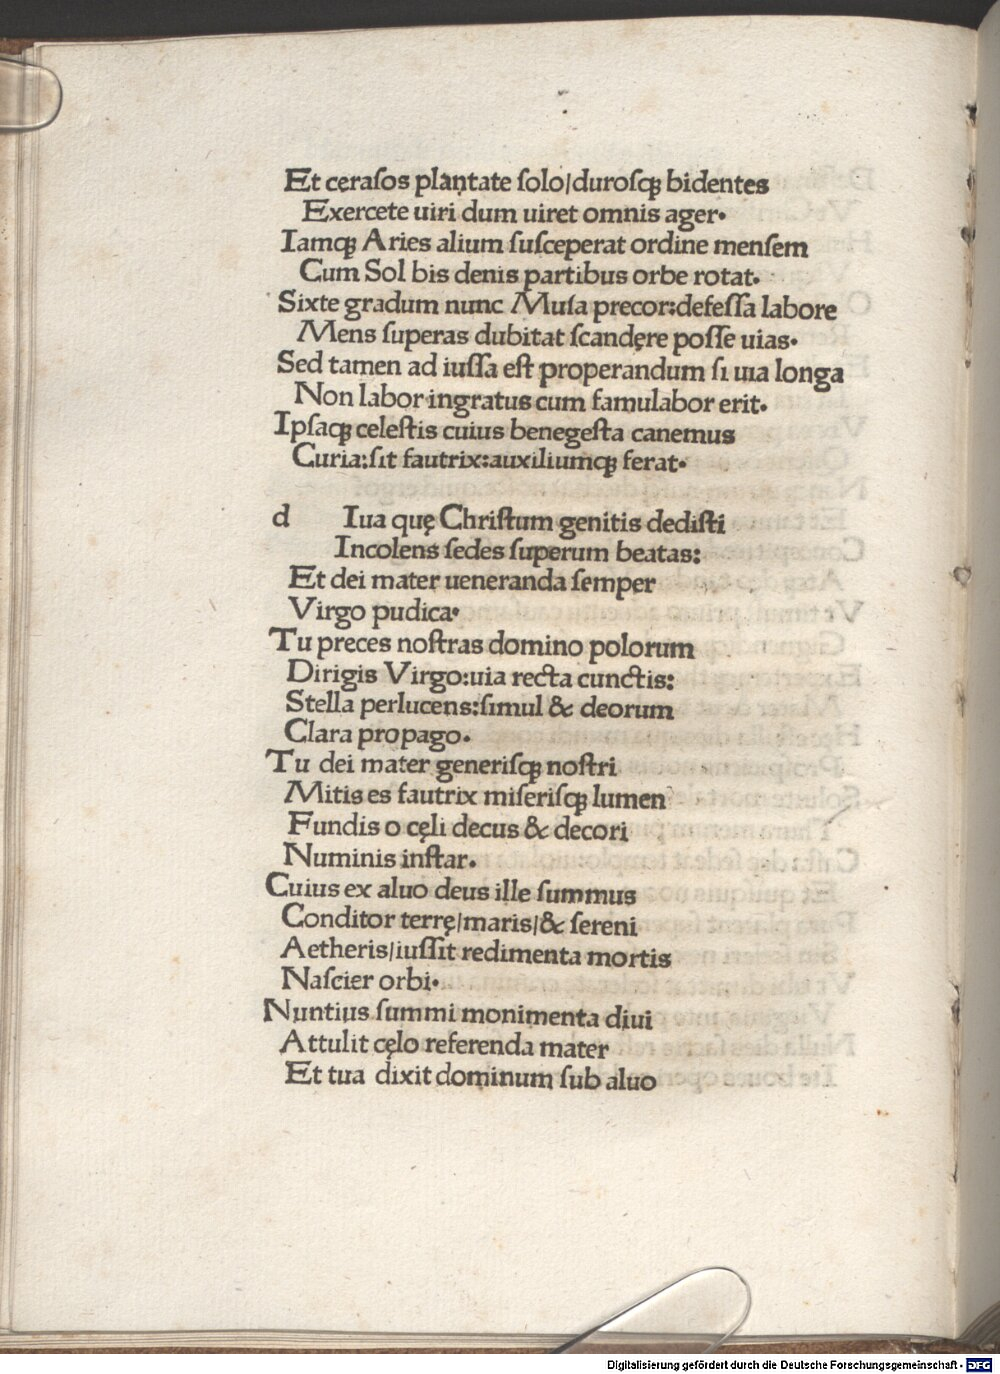 Et ceraſos plantate ſolo/duroſqꝫ bidentes
Exercete uiri dum uiret omnis ager·
Iamqꝫ Aries alium ſuſceperat ordine menſem
Cum Sol bis denis partibus orbe rotat·
Sixte gradum nunc Muſa precor:defeſſa labore
Mens ſuperas dubitat ſcandęre poſſe uias·
Sed tamen ad iuſſa eſt properandum ſi uia longa
Non labor ingratus cum famulabor erit·
Ipſaqꝫ celeſtis cuius benegeſta canemus
Curia:ſit fautrix:auxiliumqꝫ ferat·
d Iua quę Chriſtum genitis dediſti
Incolens ſedes ſuperum beatas:
Et dei mater ueneranda ſemper
Virgo pudica·
Tu preces noſtras domino polorum
Dirigis Virgo:uia recta cunctis:
Stella perlucens:ſimul & deorum
Clara propago·
Tu dei mater generiſqꝫ noſtri
Mitis es fautrix miſeriſqꝫ lumen
Fundis o cęli decus & decori
Numinis inſtar·
Cuius ex aluo deus ille ſummus
Conditor terrę/maris/& ſereni
Aetheris/iuſſit redimenta mortis
Naſcier orbi·
Nuntius ſummi monimenta diui
Attulit cęlo referenda mater
Et tua dixit dominum ſub aluo
Digitalisierung gefördert durch die Deutsche Forschungsgemeinschaft - DFG